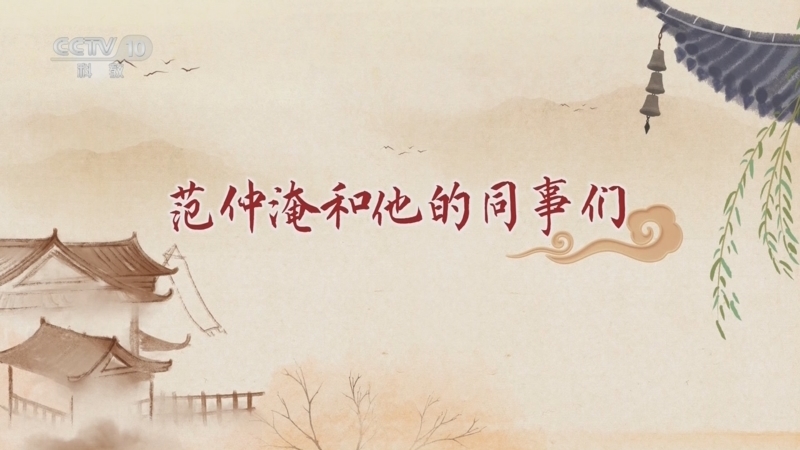 CCTV 10
科教
范仲淹和他的同事们